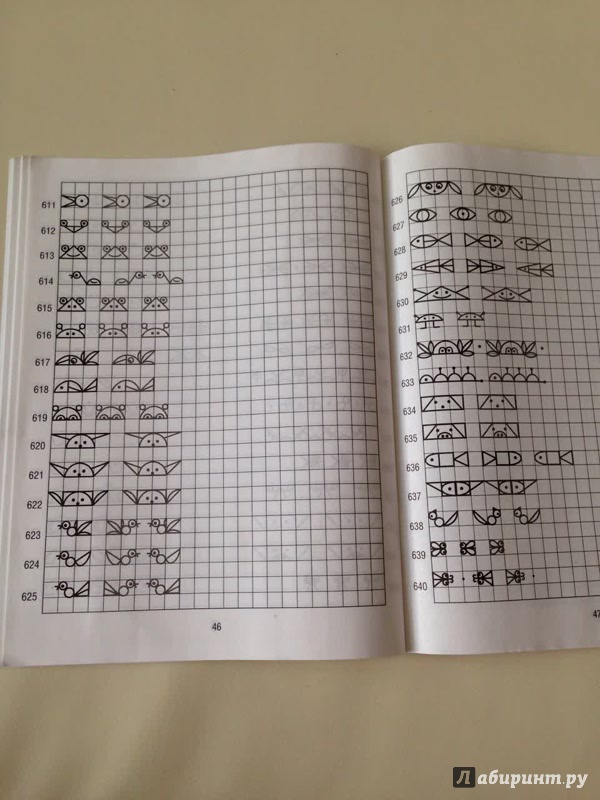 611
612
613
614
615
616
617
618
619
620
621
622
623
624
625
46
626
627
628
629
630
631
632
633
634
635
636
637
638
639
640
47
Лабиринт.ру